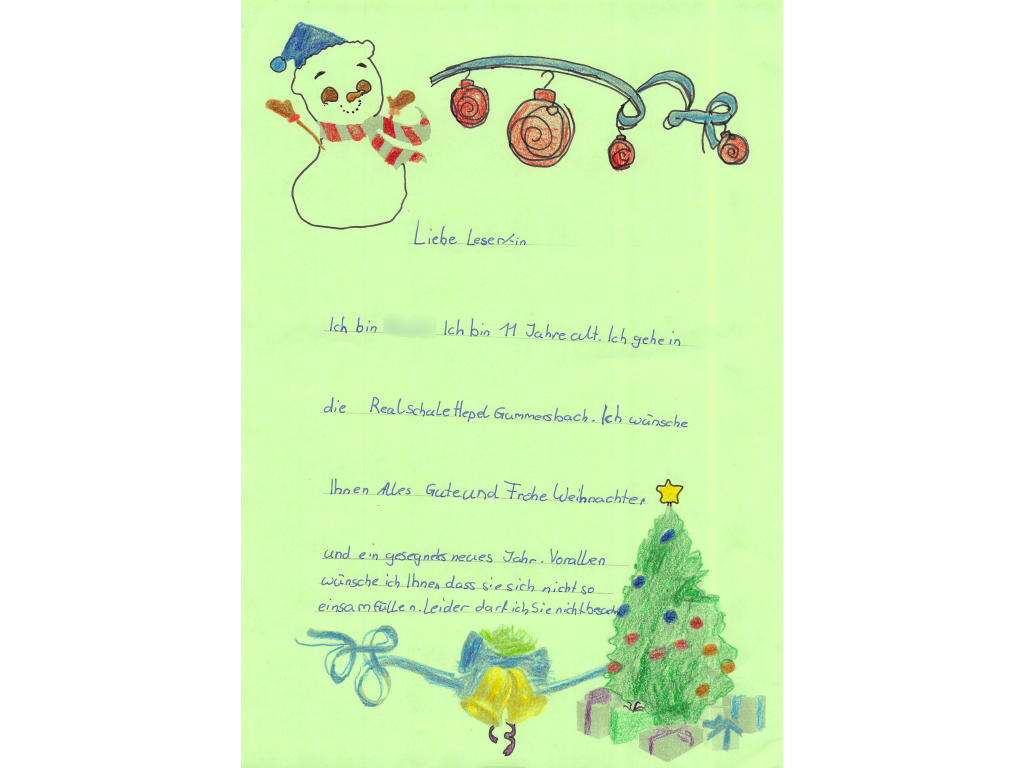 Liebe Leser/-in
Ich bin Ich bin 11 Jahre alt. Ich gehe in
die Realschule Hepel Gummersbach. Ich wünsche
Ihnen Alles Gute und Frohe Weihnachten
und ein gesegnetes neues Jahr. Vorallen
wünsche ich Ihnen dass sie sich nicht so
einsam füllen. Leider darf ich Sie nicht